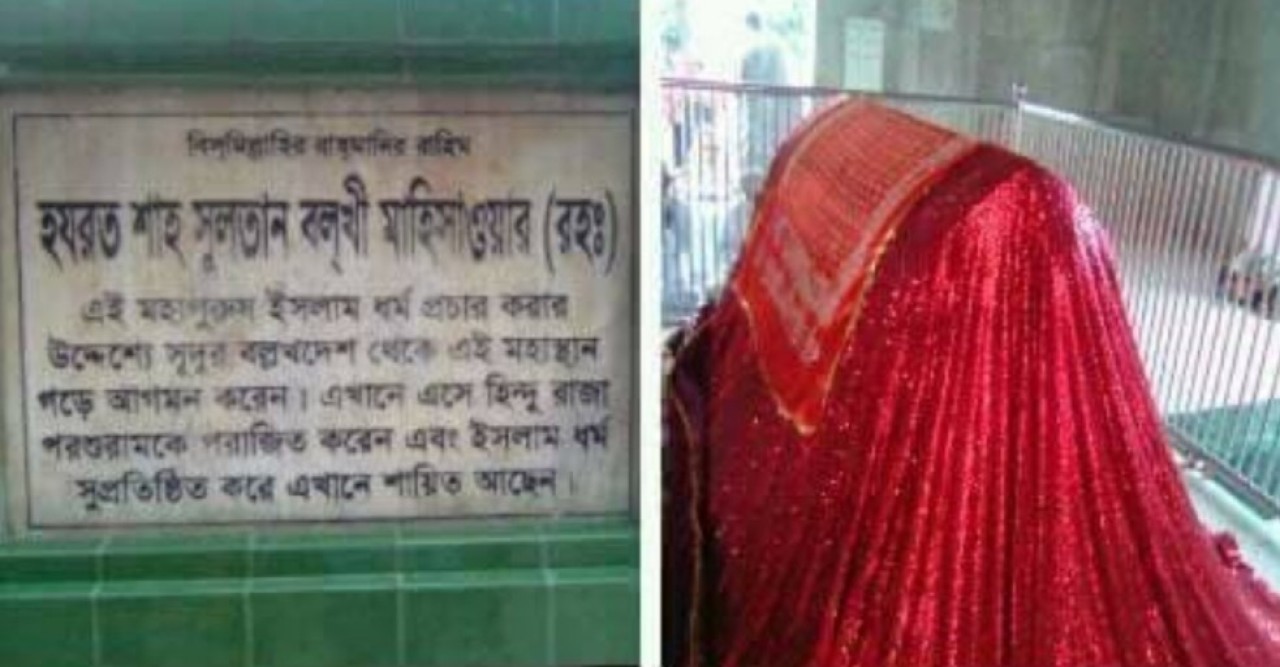 বিস্‌মিল্লাহির রাহ্‌মানির রাহিম
হযরত শাহ সুলতান বল্‌খী মাহিসাওয়ার (রহঃ)
এই মহাপুরুস ইসলাম ধর্ম প্রচার করার
উদ্দেশ্যে সূদুর বল্লখদেশ থেকে এই মহাস্থান
গড়ে আগমন করেন। এখানে এসে হিন্দু রাজা
পরশুরামকে পরাজিত করেন এবং ইসলাম ধর্ম
সুপ্রতিষ্ঠিত করে এখানে শায়িত আছেন।